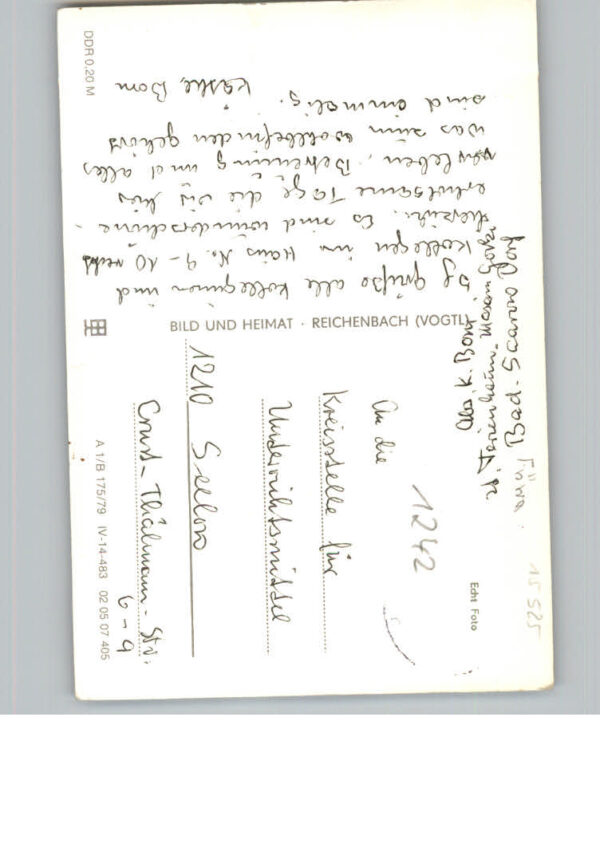 grüße alle Kolleginnen und
Kollegen im Haus Nr. 9-10 recht
herzlich. Es sind wunderschöne
erholsame Tage die wir hier
verleben, Betreuung und alles
was zum Wohlbefinden gehört
sind einmalig.
Käthe, Born
DDR 0,20 M
BILD UND HEIMAT · REICHENBACH (VOGTL)
Abs. K. Born
Ferienheim Maxim Gorki
Bad-Saarow Dorf
Echt Foto
15 525
1242
An die
Kreisstelle für
Unterrichtsmittel
1210 Seelow
Ernst-Thälmann-Str.
6-9
A 1/B 175/79 IV-14-483 02 05 07 405